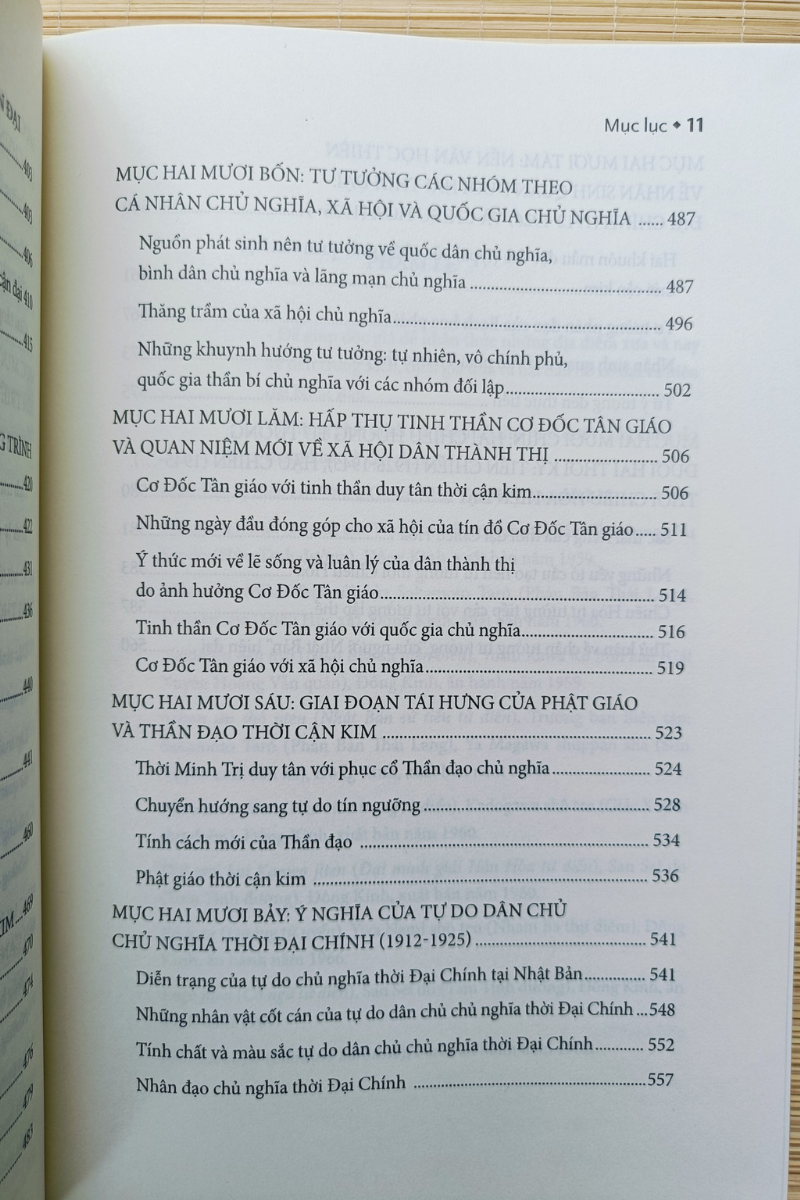 N ĐẠI
403
403
406
cận đại 410
415
G TRÌNH
420
422
431
436
440
441
460
KIM 469
470
474
476
479
483
Mục lục ◆ 11
MỤC HAI MƯƠI BỐN: TƯ TƯỞNG CÁC NHÓM THEO
CÁ NHÂN CHỦ NGHĨA, XÃ HỘI VÀ QUỐC GIA CHỦ NGHĨA ...... 487
Nguồn phát sinh nên tư tưởng về quốc dân chủ nghĩa,
bình dân chủ nghĩa và lãng mạn chủ nghĩa ............ 487
Thăng trầm của xã hội chủ nghĩa ............ 496
Những khuynh hướng tư tưởng: tự nhiên, vô chính phủ,
quốc gia thần bí chủ nghĩa với các nhóm đối lập ............ 502
MỤC HAI MƯƠI LĂM: HẤP THỤ TINH THẦN CƠ ĐỐC TÂN GIÁO
VÀ QUAN NIỆM MỚI VỀ XÃ HỘI DÂN THÀNH THỊ ............ 506
Cơ Đốc Tân giáo với tinh thần duy tân thời cận kim ............ 506
Những ngày đầu đóng góp cho xã hội của tín đồ Cơ Đốc Tân giáo ..... 511
Ý thức mới về lẽ sống và luân lý của dân thành thị
do ảnh hưởng Cơ Đốc Tân giáo ............ 514
Tinh thần Cơ Đốc Tân giáo với quốc gia chủ nghĩa ............ 516
Cơ Đốc Tân giáo với xã hội chủ nghĩa ............ 519
MỤC HAI MƯƠI SÁU: GIAI ĐOẠN TÁI HƯNG CỦA PHẬT GIÁO
VÀ THẦN ĐẠO THỜI CẬN KIM ............ 523
Thời Minh Trị duy tân với phục cổ Thần đạo chủ nghĩa ............ 524
Chuyển hướng sang tự do tín ngưỡng ............ 528
Tính cách mới của Thần đạo ............ 534
Phật giáo thời cận kim ............ 536
MỤC HAI MƯƠI BẢY: Ý NGHĨA CỦA TỰ DO DÂN CHỦ
CHỦ NGHĨA THỜI ĐẠI CHÍNH (1912-1925) ............ 541
Diễn trạng của tự do chủ nghĩa thời Đại Chính tại Nhật Bản ............ 541
Những nhân vật cốt cán của tự do dân chủ chủ nghĩa thời Đại Chính ... 548
Tính chất và màu sắc tự do dân chủ chủ nghĩa thời Đại Chính ............ 552
Nhân đạo chủ nghĩa thời Đại Chính ............ 557